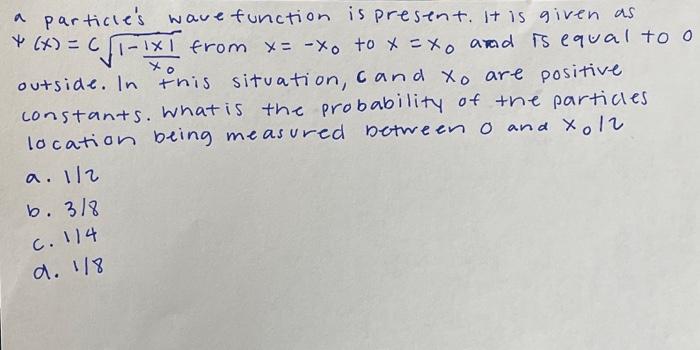 a particle's wave function is present. It is given as
Ψ(x) = C √(1 - |x|/x₀) from x = -x₀ to x = x₀ and is equal to 0
outside. In this situation, C and x₀ are positive
constants. What is the probability of the particles
location being measured between 0 and x₀/2
a. 1/2
b. 3/8
c. 1/4
d. 1/8